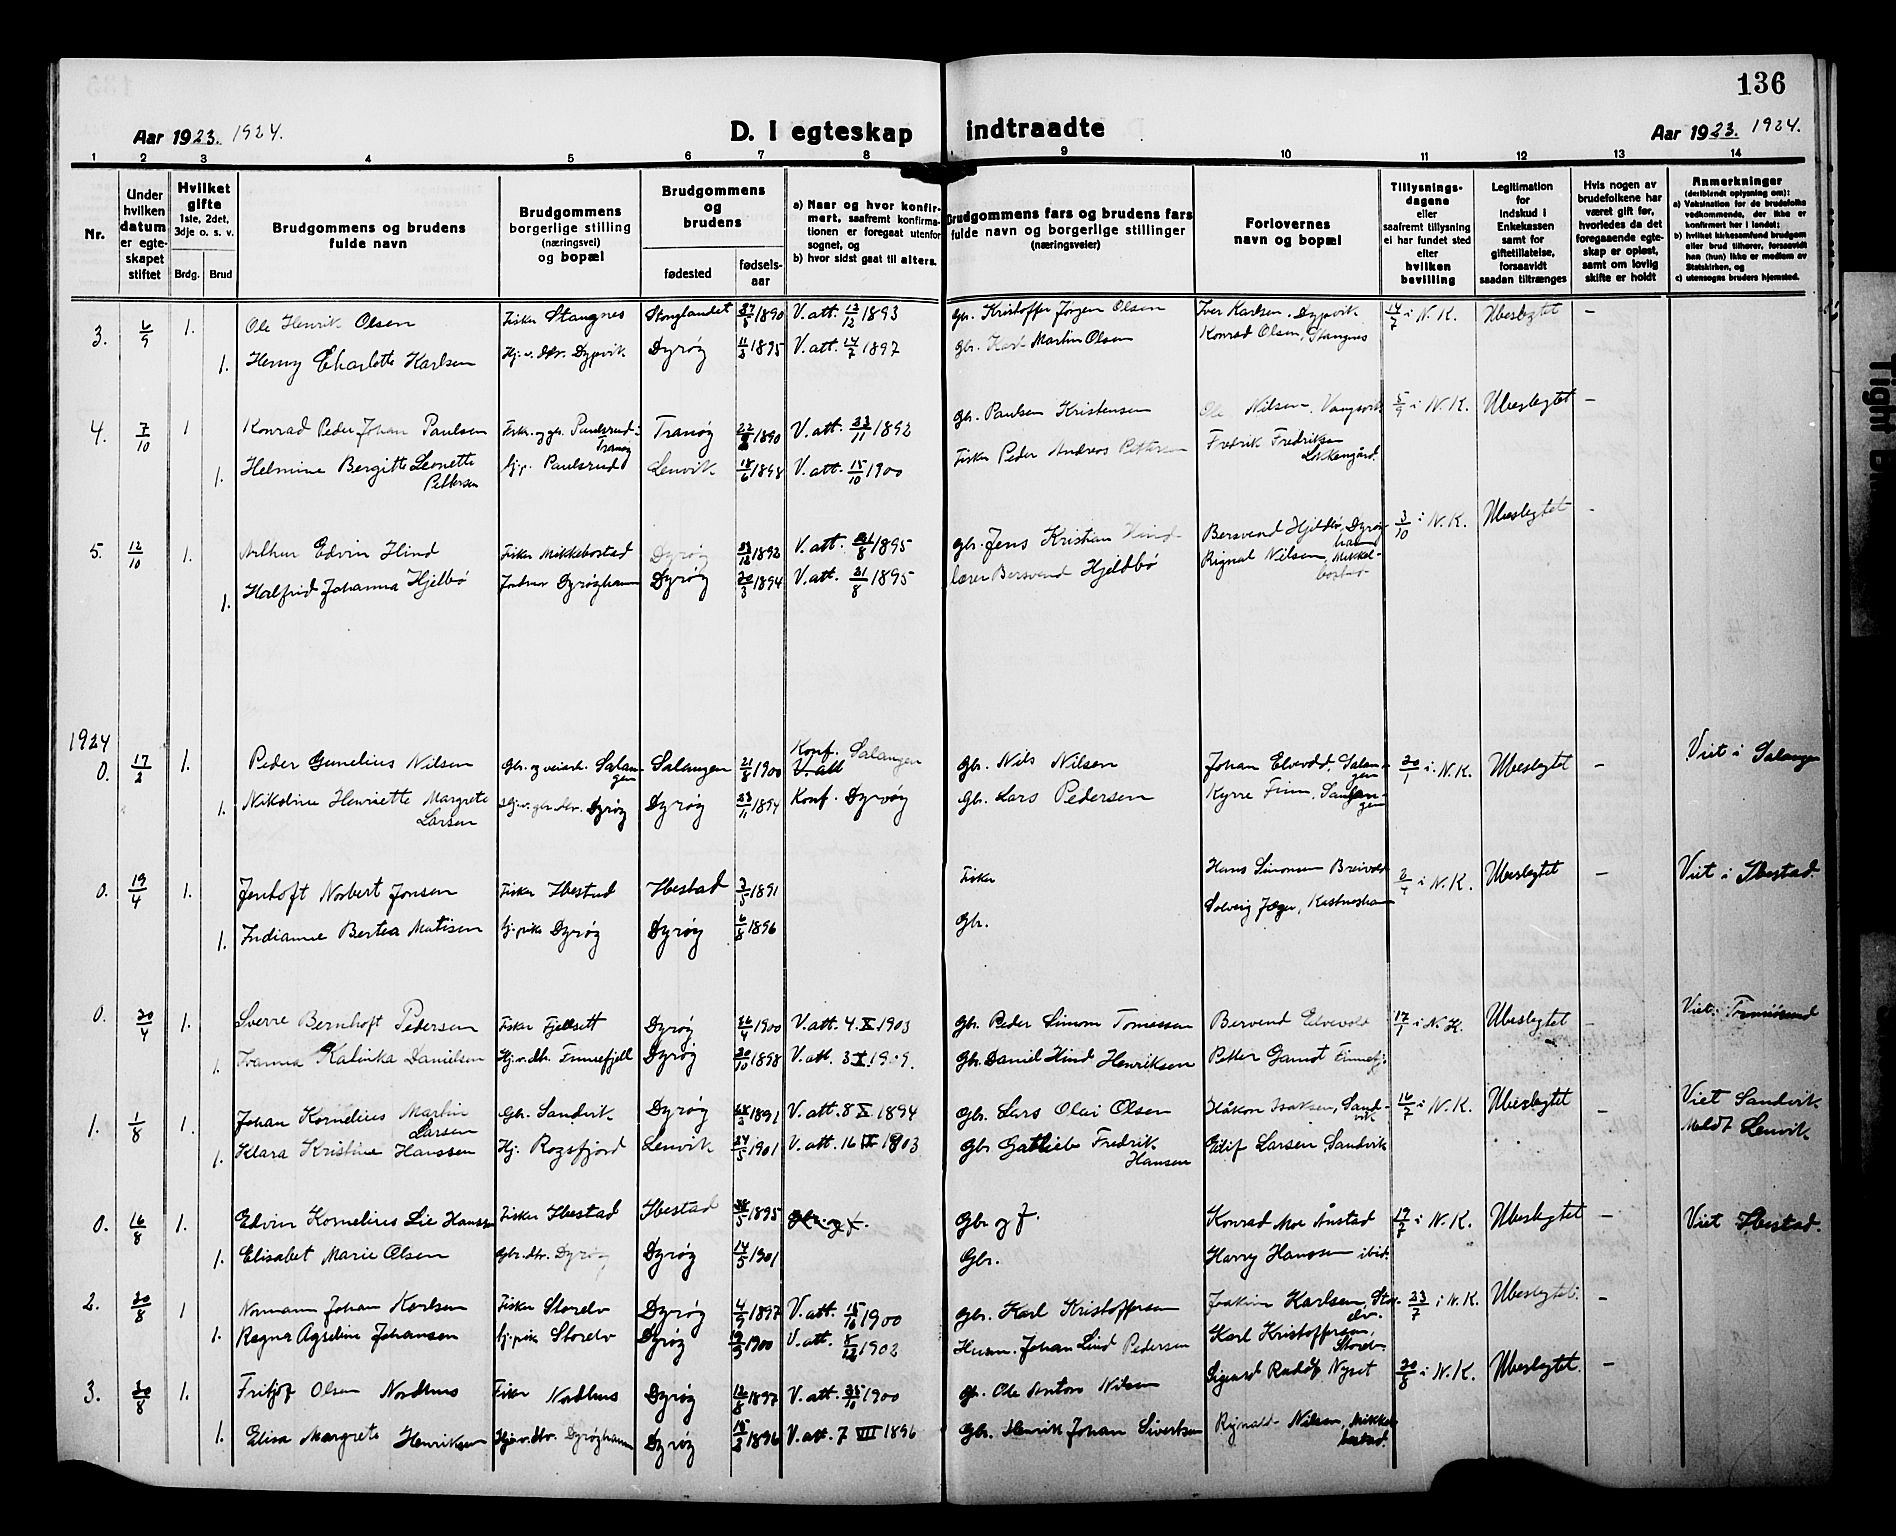 136
Aar 1923. 1924.
D. I egteskap indtraadte
Aar 1923. 1924.
1 2 3 4 5 6 7 8 9 10 11 12 13 14
Nr.
Under hvilken datum er egte-skapet stiftet
Hvilket gifte 1ste, 2det, 3dje o. s. v.
Brdg. Brud
Brudgommens og brudens fulde navn
Brudgommens borgerlige stilling (næringsvei) og bopæl
Brudgommens og brudens
fødested
fødsels-aar
a) Naar og hvor konfir-mert, saafremt konfirma-tionen er foregaat utenfor sognet, og
b) hvor sidst gaat til alters.
Brudgommens fars og brudens fars fulde navn og borgerlige stillinger (næringsveier)
Forlovernes navn og bopæl
Tillysnings-dagene eller saafremt tillysning ei har fundet sted efter hvilken bevilling
Legitimation for indskud i Enkekassen samt for giftetillatelse, forsaavidt saadan tiltrænges
Hvis nogen av brudefolkene har været gift før, hvorledes da det foregaaende egte-skap er opløst, samt om lovlig skifte er holdt
Anmerkninger (deriblandt oplysning om):
a) Vaksination for de brudefolks vedkommende, der ikke er konfirmert her i landet;
b) hvilket kirkesamfund brudgom eller brud tilhører, forsaavidt han (hun) ikke er medlem av Statskirken, og
c) utensogns bruders hjemsted.
3. 6/9 1. Ole Henrik Olsen Fisker Stangnes Stonglandet 27/8 1890 V. att. 13/12 1893 Gbr. Kristoffer Jørgen Olsen Iver Karlsen, Dypvik 14/7 i N. K. Ubeslegtet –
1. Henny Charlotte Karlsen Hj. v. dtr. Dypvik Dyrøy 11/3 1895 V. att. 14/7 1897 Gbr. Karl Martin Olsen Konrad Olsen, Stangnes
4. 7/10 1 Konrad Peder Johan Paulsen Fisk. og gbr. Paulsrud Tranøy Tranøy 1890 V. att. 23/11 1892 Gbr. Paulsen Kristensen Ole Nilsen, Vangsvik 5/9 i N. K. Ubeslegtet –
1. Helmine Bergitte Leonette Pettersen Hj. p. Paulsrud Lenvik 18/6 1898 V. att. 15/10 1900 Fisker Peder Andreas Pettersen Fredrik Fredriksen Lekkengård.
5. 12/10 1. Arthur Edvin Hind Fisker Mikkebostad Dyrøy 23/12 1892 V. att. 31/8 1895 gbr. Jens Kristian Hind Bersvend Hjeldbø, Dyrøyhavn 3/10 i N. K. Ubeslegtet –
1. Halfrid Johanna Hjelbø Dyrøyhamn Dyrøy 20/3 1894 V. att. 31/8 1895 lærer Bersvend Hjeldbø Rignal Nilsen, Mikkel-bostad
1924
0. 17/2 1. Peder Gunelius Nilsen Gbr. og veiarb. Salangen Salangen 21/8 1900 Konf. Salangen V. att Gbr. Nils Nilsen Johan Elvevold, Salangen 20/1 i N. K. Ubeslegtet – Viet i Salangen
1. Nikoline Henriette Margrete Larsen Hj. v. gbr. dtr. Dyrøy Dyrøy 23/11 1894 Konf. Dyrøy Gbr. Lars Pedersen Kyrre Finn, Salangen
0. 19/4 1. Jenhoft Norbert Jonsen Fisker Ibestad Ibestad 3/5 1891 Fisker Hans Simonsen Breivold 2/4 i N. K. Ubeslegtet – Viet i Ibestad
1. Indianne Bertea Matisen Hj. pike Dyrøy Dyrøy 6/8 1896 Gbr. Solveig Jæger, Kastneshamn
0. 20/4 1. Sverre Bernhoft Pedersen Fisker Fjellsett Dyrøy 26/4 1900 V. att. 4. X 1903 Gbr. Peder Simon Tomassen Bervend Elvevold 17/1 i N. K. Ubeslegtet – Viet i Tromsösund
1. Ivanna Kalinka Danielsen Hj. v. dtr. Finnefjell Dyrøy 20/10 1898 V. att. 3 X. 1909. Gbr. Daniel Hind Henriksen Petter Gamst Finnefj.
1. 1/8 1. Johan Kornelius Martin Larsen Gbr. Sandvik Dyrøy 1891 V. att. 8 X. 1894 Gbr. Lars Olai Olsen Håkon Isaksen, Sandvik 16/7 i N. K. Ubeslegtet – Viet Sandvik
1. Klara Kristine Hanssen Hj. Rogsfjord Lenvik 24/5 1901 V. att. 16 1903 Gbr. Gatlieb Fredrik Hansen Edif Larsen Sandvik Meldt Lenvik
0. 16/8 1. Edvin Kornelius Lie Hanssen Fisker Ibestad Ibestad 1895 Gbr og f. Gbr og f. Konrad Moe Ånstad 19/7 i N. K. Ubeslegtet – Viet Ibestad.
1. Elisabet Marie Olsen Gbr. dtr. Dyrøy Dyrøy 14/5 1901 Gbr. Harry Hanssen ibid.
2. 20/8 1 Normann Johan Karlsen Fisker Storelv Dyrøy 4/9 1897 V. att. 15/10 1900 Gbr. Karl Kristoffersen Joakim Karlsen, Storelv. 23/7 i N. K. Ubeslegtet. –
1. Ragna Agseline Johansen Hj. pike Storelv Dyrøy 19/9 1900 V. att. 8/12 1902 Husm. Johan Lind Pedersen Karl Kristoffersen, Storelv
3. 30/8 1. Fritjof Olsen Nordhus Fisker Nordhus Dyrøy 12/8 1897 V. att. 25/10 1900 Gbr. Ole Anton Nilsen Sigurd Rudolf Nyset 20/8 i N. K. Ubeslegtet. –
1. Elisa Margrete Henriksen Hj. v. dtr. Dyrøyhamn Dyrøy 15/2 1896 V. att. 7 VII 1896 Gbr. Henrik Johan Sivertsen Rignald Nilsen, Mikkelbostad.
Tight B